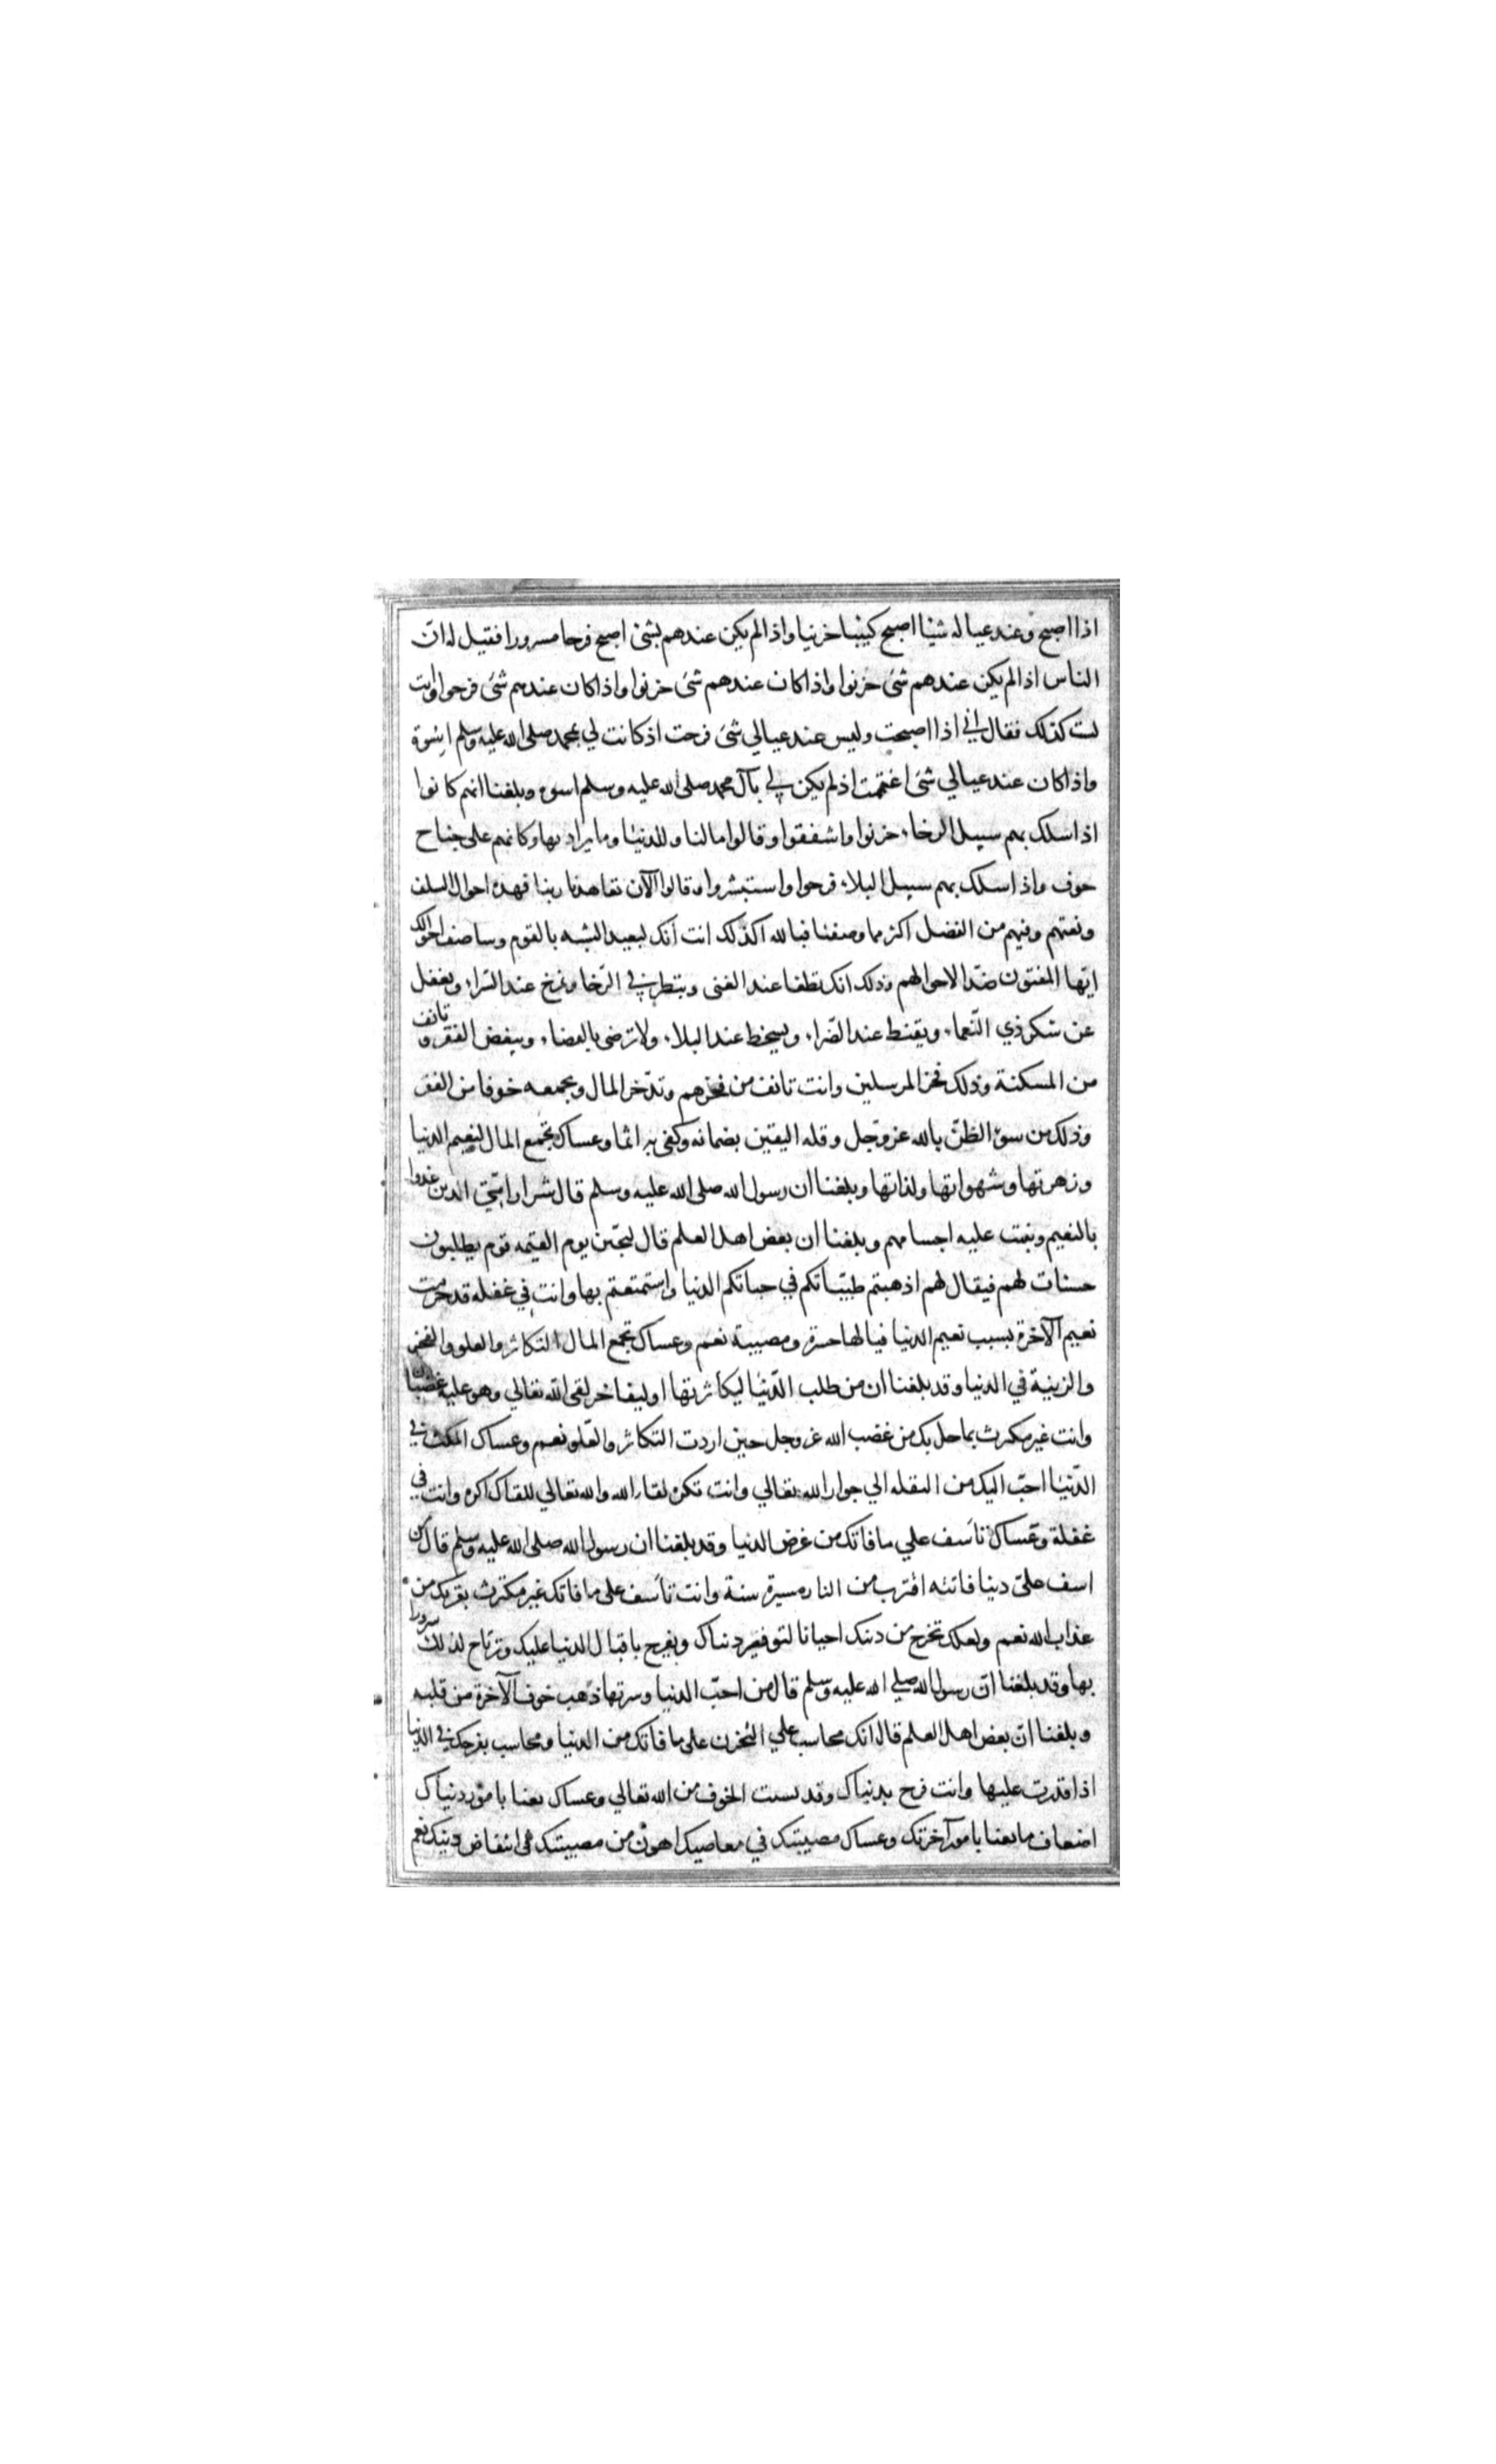 اذا اصبح وعند عياله شيئا اصبح كئيبا حزنيا واذا لم يكن عندهم بشئ اصبح فرحا مسرورا فقيل له انّ
الناس اذا لم يكن عندهم شئ حزنوا واذا كان عندهم شئ حزنوا واذا كان عندهم شئ فرحوا وانت
لست كذلك فقال اني اذا اصبحت وليس عند عيالي شئ فرحت اذ كانت لي بمحمد صلى الله عليه وسلم اسوة
واذا كان عند عيالي شئ اغتممت اذ لم يكن لي بآل محمد صلى الله عليه وسلم اسوه وبلغنا انهم كانوا
اذا سلك بهم سبيل الرخاء حزنوا واشفقوا وقالوا ما لنا وللدنيا وما يراد بها وكانهم على جناح
خوف واذا سلك بهم سبيل البلاء فرحوا واستبشروا وقالوا الآن تعاهدنا ربنا فهذه احوال السلف
ونعتهم وفيهم من الفضل اكثر مما وصفنا فبالله اكذلك انت انك لبعيد الشبه بالقوم وساصف احوالك
ايها المفتون ضدّا لاحوالهم وذلك انك تطغا عند الغنى وتبطر في الرّخا وتمرح عند السّراء وتغفل
عن شكر ذي النّعماء وتقنط عند الضّراء وتسخط عند البلاء ولا ترضى بالقضاء وتبغض الفقر وتانف
من المسكنة وذلك فخر المرسلين وانت تانف من فخرهم وتدّخر المال وتجمعه خوفا من الفقر
وذلك من سوء الظنّ بالله عز وجل وقله اليقين بضمانه وكفى به اثما وعساك تجمع المال لنعيم الدنيا
وزهرتها وشهواتها ولذاتها وبلغنا ان رسول الله صلى الله عليه وسلم قال شرار امتي الذين غدوا
بالنعيم ونبتت عليه اجسامهم وبلغنا ان بعض اهل العلم قال ليجئن يوم القيمه قوم يطلبون
حسنات لهم فيقال لهم اذهبتم طيّباتكم في حياتكم الدنيا واستمتعتم بها وانت في غفله قد حرمت
نعيم الآخرة بسبب نعيم الدنيا فيا لها حسرة ومصيبة نعم وعساك تجمع المال للتكاثر والعلو والفخر
والزينة في الدنيا وقد بلغنا ان من طلب الدّنيا ليكاثر بها او ليفاخر لقى الله تعالي وهو عليه غضبان
وانت غير مكترث بما حل بك من غضب الله عز وجل حين اردت التكاثر والعّلو نعم وعساك المكث في
الدّنيا احبّ اليك من النقله الي جوار الله تعالي وانت تكره لقاء الله والله تعالي للقاك اكره وانت في
غفلة وعّساك تاسف علي ما فاتك من عرض الدنيا وقد بلغنا ان رسول الله صلى الله عليه وسلم قال من
اسف على دينا فاتته اقترب من النار مسيرة سنة وانت تاسف على ما فاتك غير مكترث بقربك من
عذاب الله نعم ولعلك تخرج من دينك احيانا لتوفير دنياك وتفرح باقبال الدنيا عليك وترتاح لذلك سرورا
بها وقد بلغنا انّ رسول الله صلي الله عليه وسلم قال من احبّ الدنيا وسر بها ذهب خوف الآخرة من قلبه
وبلغنا انّ بعض اهل العلم قال انك محاسب علي التحزن على ما فاتك من الدنيا ومحاسب بفرحك في الدنيا
اذا قدرت عليها وانت فرح بدنياك وقد لست الخوف من الله تعالي وعساك تعنا بامور دنياك
اضعاف ما تعنا بامور آخرتك وعساك مصيبتك في معاصيك اهون من مصيبتك في انتقاص دنيك نعم